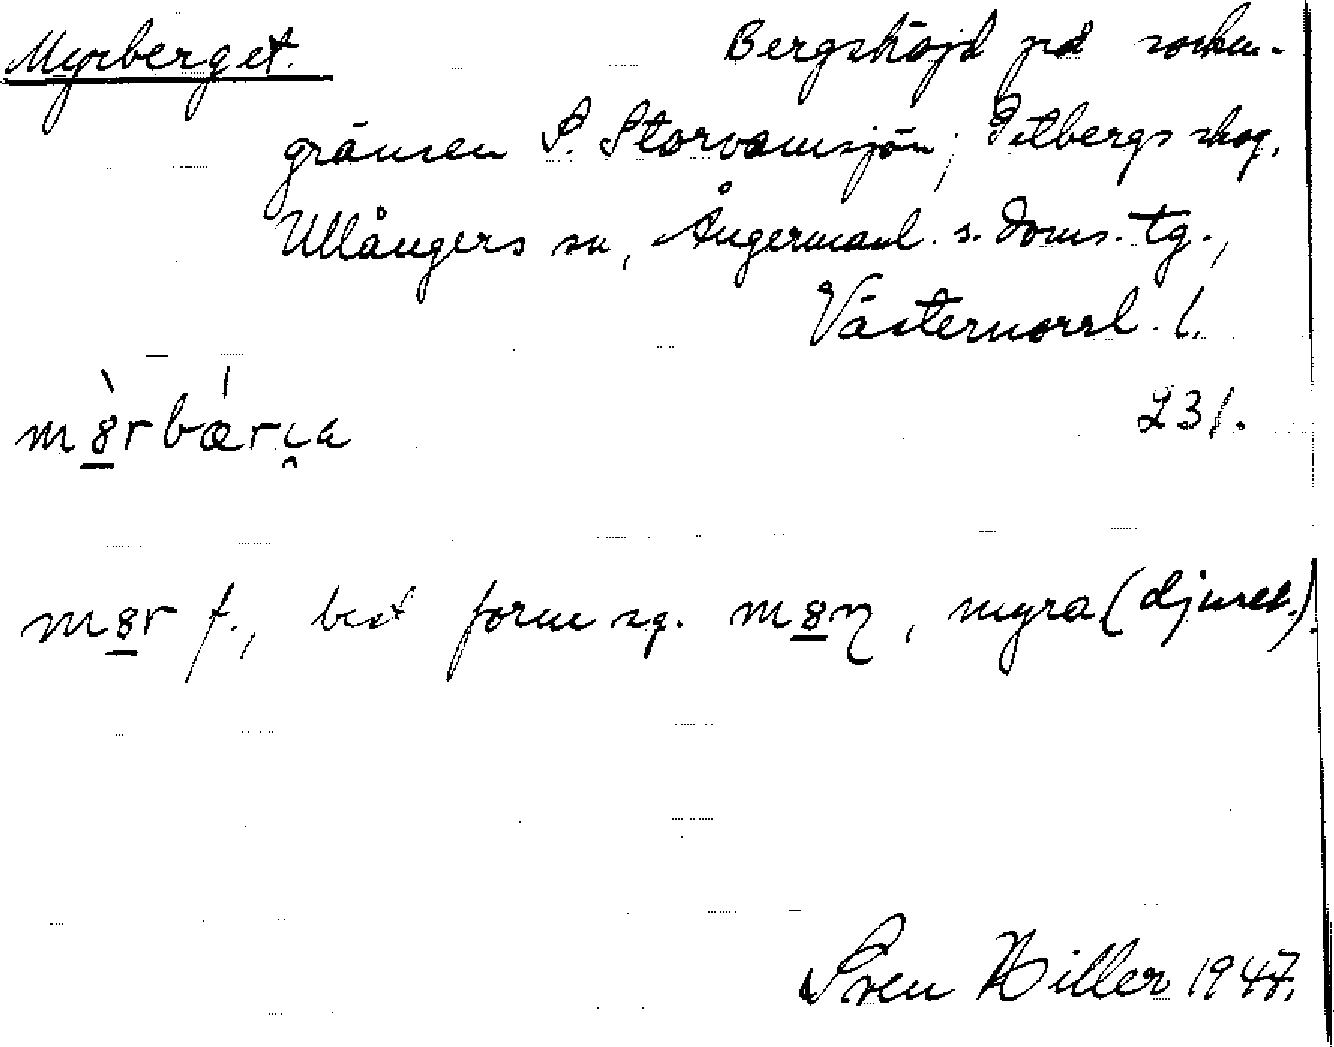 Myrberget. Bergshöjd på socken-
gränsen S. Storvamsjön; Petbergs skog,
Ullångers sn, Ångermanl. s. doms. tg.,
Västernorrl. l.
231.
f., best form sg. , myra (djuret.)
Sven Hiller 1947.